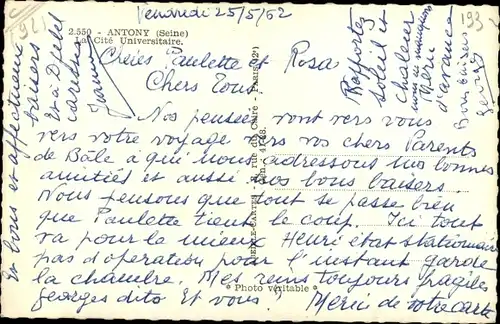 Vendredi 25/5/62
2.550 - ANTONY (Seine)
La Cité Universitaire.
Chères Paulette et Rosa
Chers Tous.
Nos pensées vont vers vous
vers votre voyage vers vos chers Parents
de Bâle à qui nous adressons nos bonnes
amitiés et aussi nos bons baisers.
Nous pensons que tout se passe bien
que Paulette tient le coup. Ici tout
va pour le mieux. Henri état stationnaire
pas d'opération pour l'instant garde
la chambre. Mes reins toujours fragiles
georges dito Et vous? Merci de votre carte
* Photo véritable *
Rapportez
soleil et
chaleur
nous en manquons
Merci
d'avance
Bons baisers
193
et affectueux
baisers